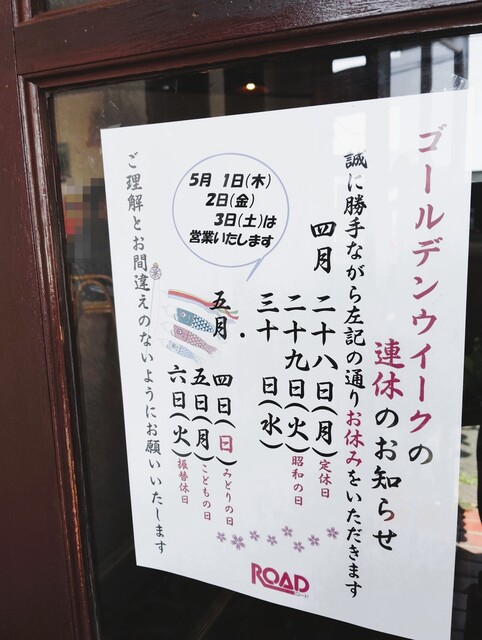 ゴールデンウイークの
連休のお知らせ
誠に勝手ながら左記の通りお休みをいただきます
四月 二十八日(月)定休日
二十九日(火)昭和の日
三十 日(水)
・
五月 四日(日)みどりの日
五日(月)こどもの日
六日(火)振替休日
5月 1日(木)
2日(金)
3日(土)は
営業いたします
ご理解とお間違えのないようにお願いいたします
ROAD